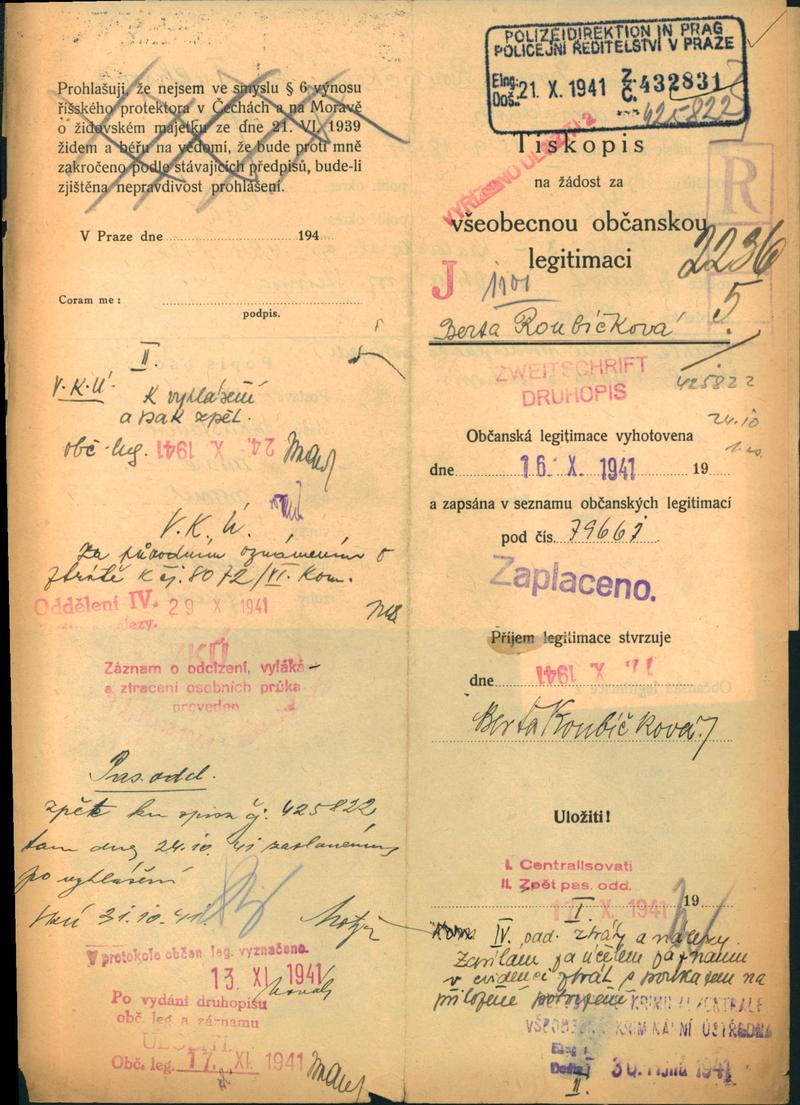 Prohlašuji, že nejsem ve smyslu § 6 výnosu
říšského protektora v Čechách a na Moravě
o židovském majetku ze dne 21. VI. 1939
židem a béřu na vědomí, že bude proti mně
zakročeno podle stávajících předpisů, bude-li
zjištěna nepravdivost prohlášení.
V Praze dne 194
Coram me:
podpis.
II.
V.K.Ú.
K vyhlášení
a pak zpět.
obč. leg. 24. X 1941
V.K.Ú.
Za původním oznámením o
ztrátě k čj. 8072/VI. Kom.
Oddělení IV. 29 X 1941
Záznam o odcizení, vyláká-
a ztracení osobních průka
proveden
Pas. odd.
zpět ku spisu čj. 425822
tam dne 24.10. 41 zaslanému
po vyhlášení
31.10.41.
V protokole občan. leg. vyznačeno.
13. XI. 1941
Po vydání druhopisu
obč. leg. a záznamu
ULOŽITI.
Obč. leg. 17. XI. 1941
POLIZEIDIREKTION IN PRAG
POLICEJNÍ ŘEDITELSTVÍ V PRAZE
Eing.: Doš.: 21. X. 1941 Z. Č. 432831
425822
Tiskopis
na žádost za
všeobecnou občanskou
legitimaci
R
2236
5
J
Berta Roubíčková
ZWEITSCHRIFT
DRUHOPIS
425822
24.10
Občanská legitimace vyhotovena
dne 16. X. 1941 19
a zapsána v seznamu občanských legitimací
pod čís. 79667
Zaplaceno.
Příjem legitimace stvrzuje
dne X 1941
Berta Roubíčková
Uložiti!
I. Centralisovati
II. Zpět pas. odd.
17 X. 1941 19
I.
IV. odd. ztráty a nálezy.
Zasílám za účelem záznamu
v evidenci ztrát s poukazem na
přiložené potvrzení
KRIMINALZENTRALE
VŠEOBECNÁ KRIMINÁLNÍ ÚSTŘEDNA
30. října 1941
II.